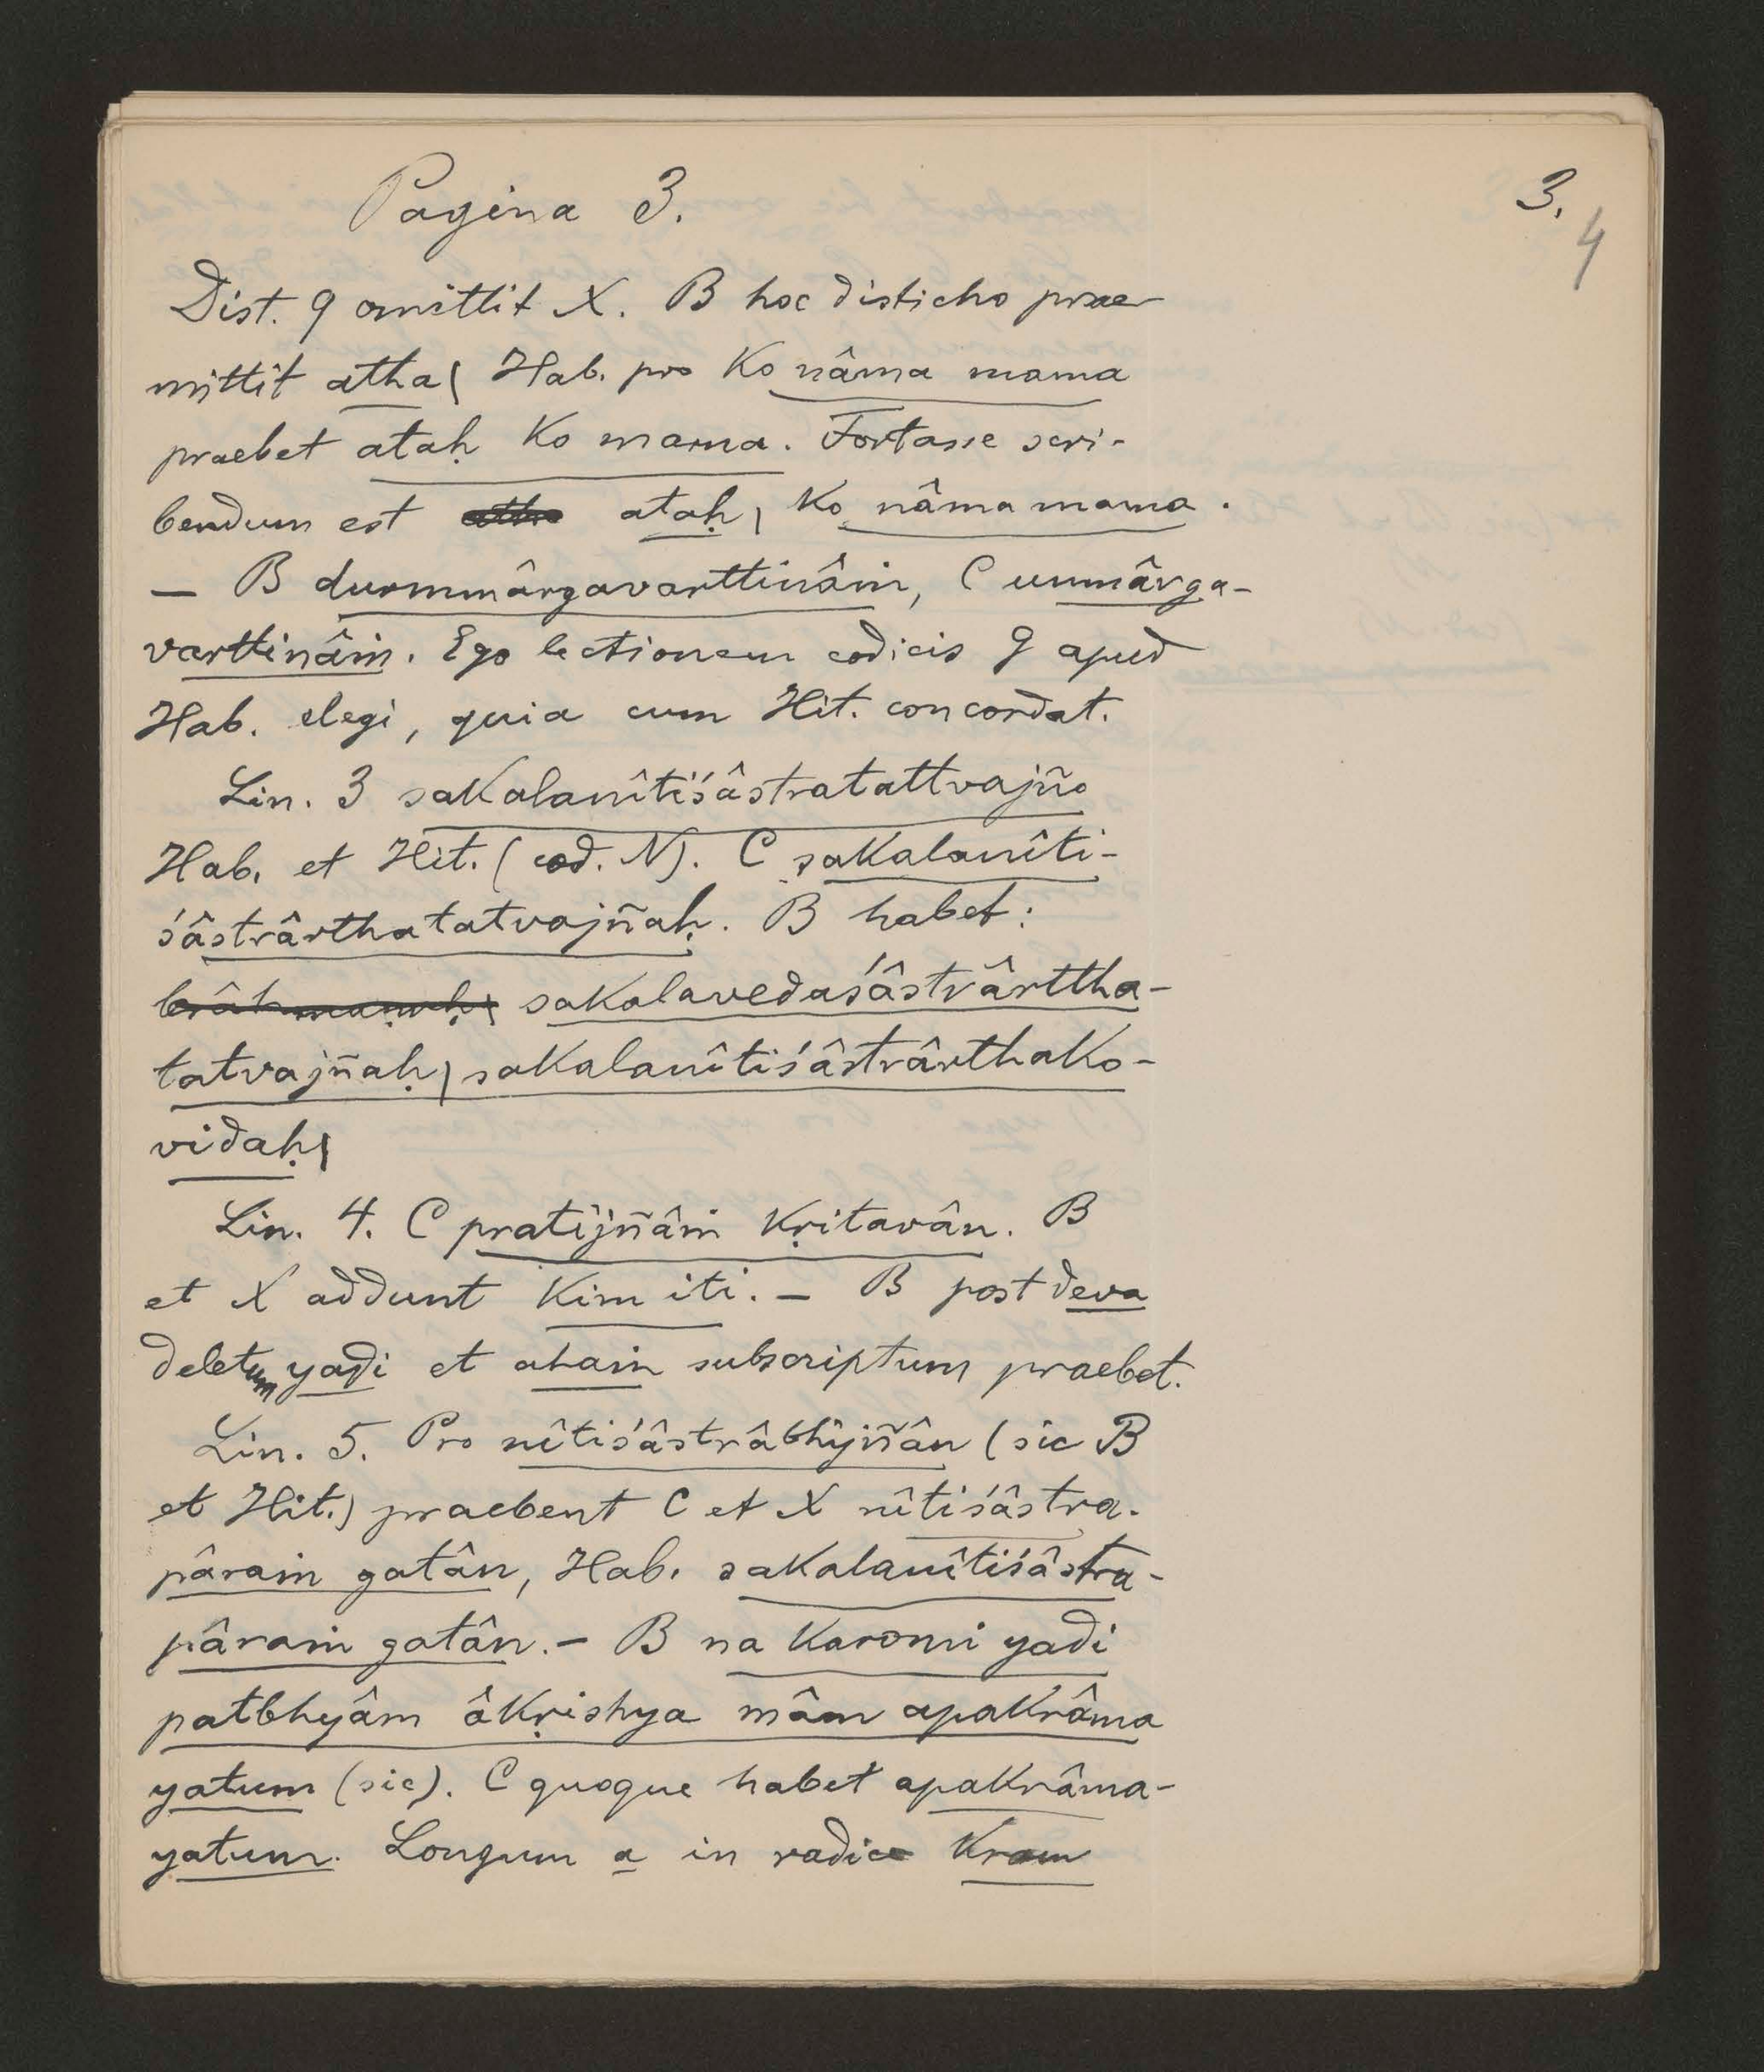 Pagina 3.
3.
4
Dist. 9 omittit X. B hoc disticho prae
mittit atha| Hab. pro ko nâma mama
praebet ataḥ ko mama. Fortasse scri-
bendum est ataḥ| ko nâma mama.
— B durmmârgavarttinâṁ, C unmârga-
varttinâṁ. Ego lectionem codicis g apud
Hab. elegi, quia cum Hit. concordat.
Lin. 3 sakalanîtiśâstratattvajño
Hab. et Hit. (cod. N). C sakalanîti-
śâstrârthatatvajñaḥ. B habet:
brâhmaṇaḥ| sakalavedaśâstrârttha-
tatvajñaḥ| sakalanîtiśâstrârthako-
vidaḥ|
Lin. 4. C pratijñâṁ kṛitavân. B
et X addunt kim iti. — B post deva
deletum yadi et ahaṁ subscriptum praebet.
Lin. 5. Pro nîtiśâstrâbhijñân (sic B
et Hit.) praebent C et X nîtiśâstra-
pâraṁ gatân, Hab. sakalanîtiśâstra-
pâraṁ gatân. — B na karomi yadi
patbhyâm âkṛishya mâm apakrâma
yatum (sic). C quoque habet apakrâma-
yatum. Longum a in radice kram